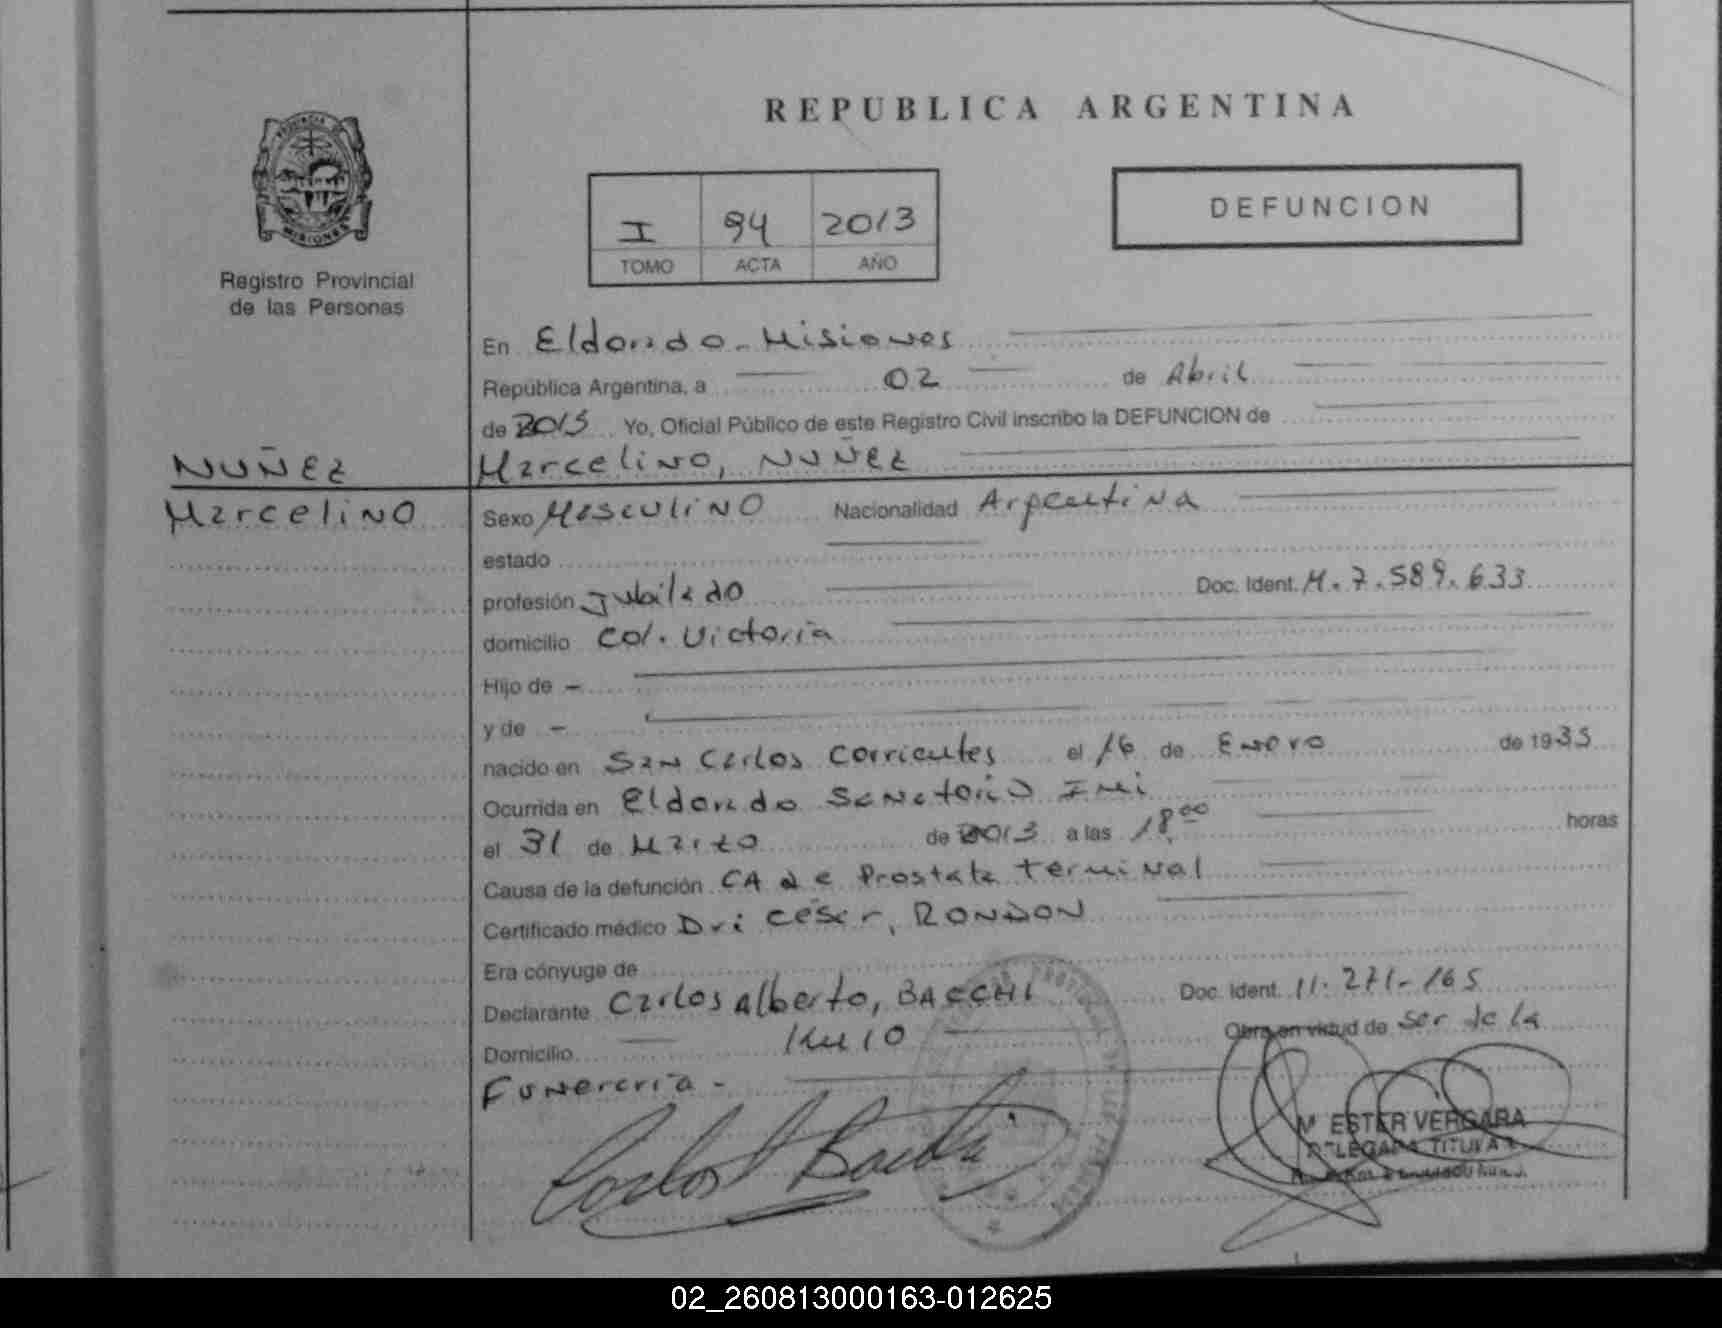 REPUBLICA ARGENTINA
PROVINCIA DE
MISIONES
Registro Provincial
de las Personas
I 94 2013
TOMO ACTA AÑO
DEFUNCION
En Eldorado - Misiones
República Argentina, a 02 de Abril
de 2013 Yo, Oficial Público de este Registro Civil inscribo la DEFUNCION de
NUÑEZ
Marcelino
Marcelino, NUÑEZ
Sexo Masculino Nacionalidad Argentina
estado
profesión Jubilado Doc. Ident. M. 7.589.633
domicilio Col. Victoria
Hijo de -
y de -
nacido en San Carlos Corrientes el 16 de Enero de 1935
Ocurrida en Eldorado Sanatorio
el 31 de Marzo de 2013 a las 18,00 horas
Causa de la defunción CA de Prostata terminal
Certificado médico Dr: César, RONDON
Era cónyuge de
Declarante Carlos Alberto, BACCHI Doc. Ident. 11.271-165
Domicilio Km 10 Obra en virtud de Ser de la
Funeraria -
Mª ESTER VERGARA
DELEGADA TITULAR
02_260813000163-012625